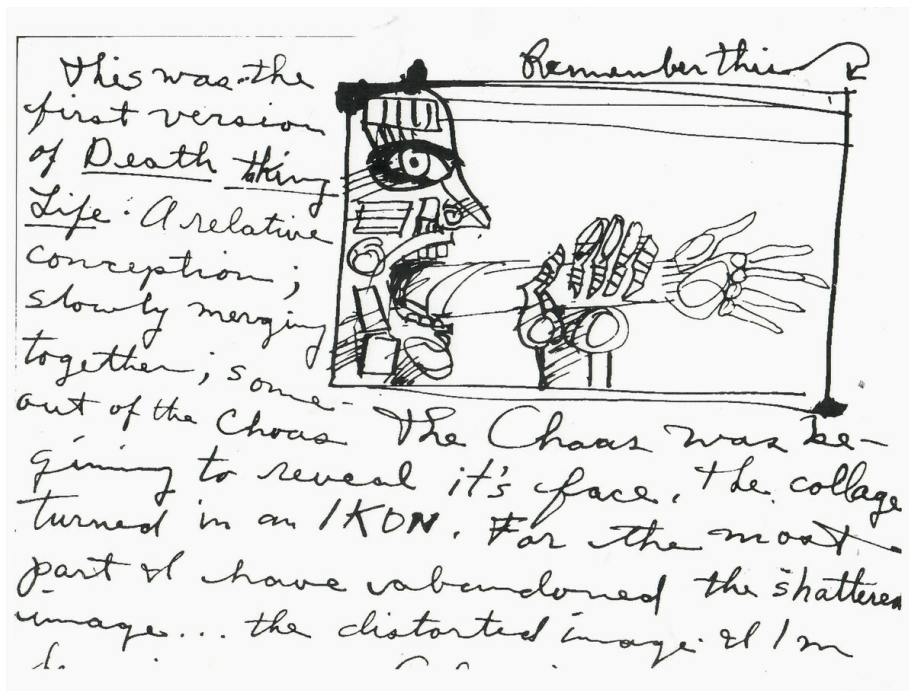 Remember this
This was the
first version
of Death tking
Life. A relative
conception;
slowly merging
together; some-
out of the Choas The Choas was be-
gining to reveal it's face. The collage
turned in an IKON. For the most
part I have abandoned the shattered
image... the distorted image. I'm